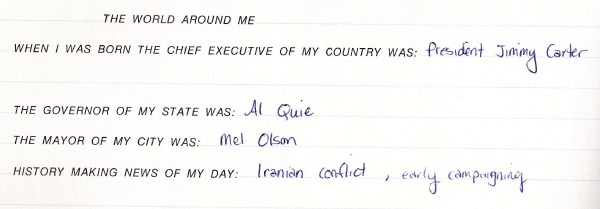 THE WORLD AROUND ME
WHEN I WAS BORN THE CHIEF EXECUTIVE OF MY COUNTRY WAS: President Jimmy Carter
THE GOVERNOR OF MY STATE WAS: Al Quie
THE MAYOR OF MY CITY WAS: Mel Olson
HISTORY MAKING NEWS OF MY DAY: Iranian conflict, early campaigning